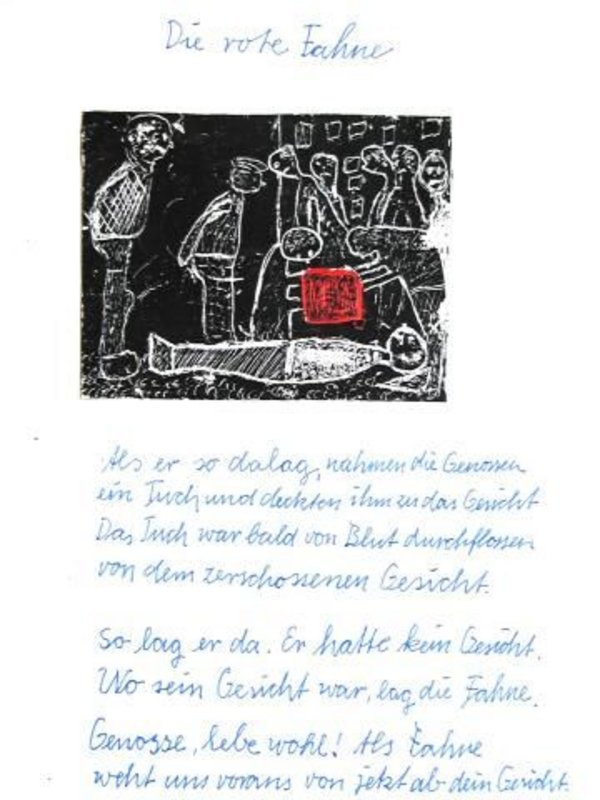 Die rote Fahne
Als er so dalag, nahmen die Genossen
ein Tuch und deckten ihm zu das Gesicht
Das Tuch war bald von Blut durchflossen
von dem zerschossenen Gesicht.
So lag er da. Er hatte kein Gesicht.
Wo sein Gesicht war, lag die Fahne.
Genosse, lebe wohl! Als Fahne
weht uns voraus von jetzt ab dein Gesicht.